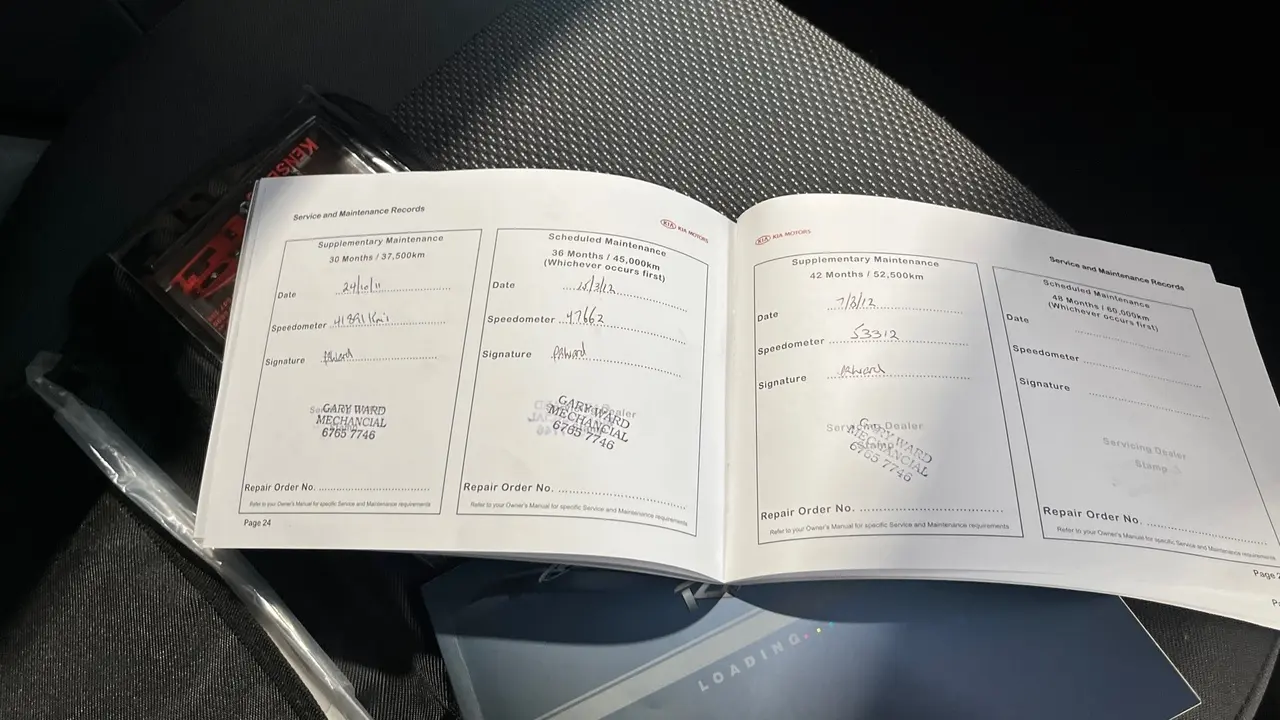 Service and Maintenance Records
KIA MOTORS
Supplementary Maintenance
30 Months / 37,500km
Date 24/10/11
Speedometer 41891 Km's
Signature
GARY WARD
MECHANCIAL
6765 7746
Repair Order No.
Refer to your Owner's Manual for specific Service and Maintenance requirements
Page 24
Scheduled Maintenance
36 Months / 45,000km
(Whichever occurs first)
Date /3/12
Speedometer 47662
Signature PAWard
Dealer
GARY WARD
MECHANCIAL
6765 7746
Repair Order No.
Refer to your Owner's Manual for specific Service and Maintenance requirements
KIA MOTORS
Service and Maintenance Records
Supplementary Maintenance
42 Months / 52,500km
Date
Speedometer 53312
Signature PAWard
Servicing Dealer
Stamp
GARY WARD
MECHANCIAL
6765 7746
Repair Order No.
Refer to your Owner's Manual for specific Service and Maintenance requirements
Scheduled Maintenance
48 Months / 60,000km
(Whichever occurs first)
Date
Speedometer
Signature
Servicing Dealer
Stamp
Repair Order No.
Refer to your Owner's Manual for specific Service and Maintenance requirements
Page
LOADING...